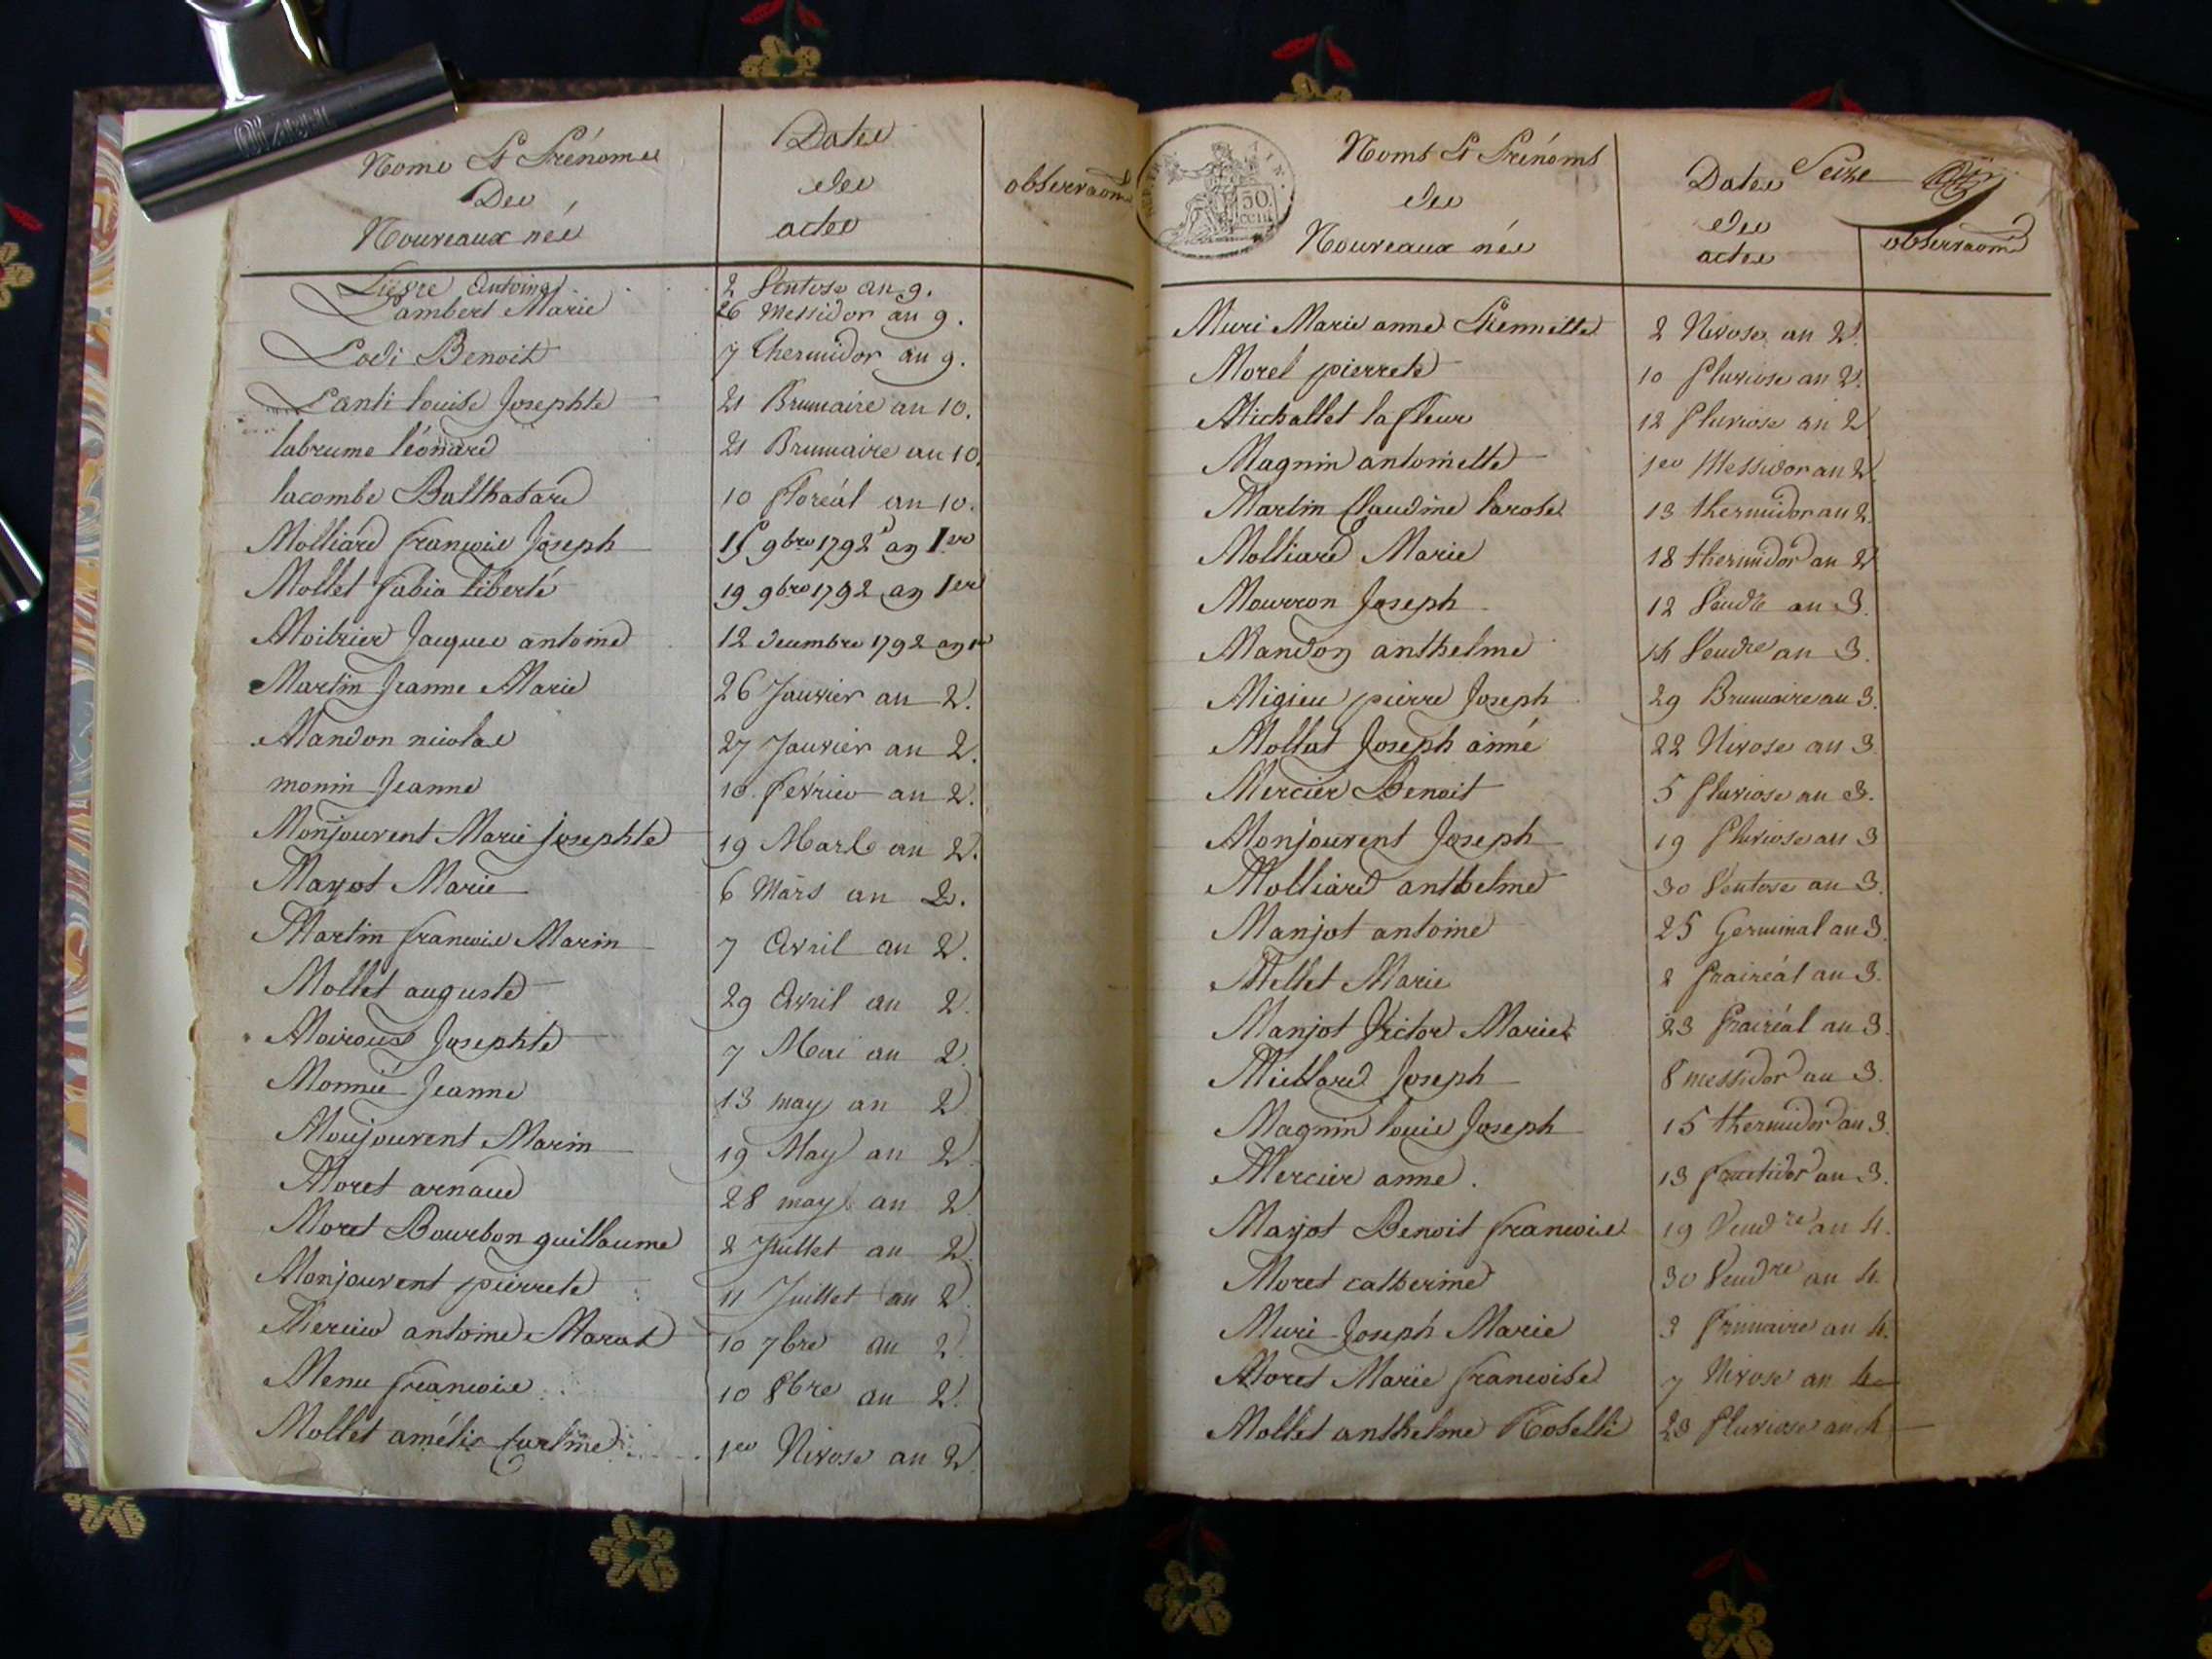 Noms Et Prénoms
Des
Nouveaux nés
Dates
des
actes
observaons
Lievre Antoine 2 Ventose an 9.
Lambert Marie 26 Messidor an 9.
Lodi Benoit 7 thermidor an 9.
Lanti louise Josephte 21 Brumaire an 10.
labrume léonard 21 Brumaire an 10.
lacombe Balthasard 10 floréal an 10.
Molliard francois Joseph 9bre 1792 an 1er
Mollet fabia liberté 19 9bre 1792 an 1er
Moitrier Jacques antoine 12 decembre 1792 an 1er
Martin Jeanne Marie 26 Janvier an 2.
Mandon nicolas 27 Janvier an 2.
monin Jeanne 10 février an 2.
Monjouvent Marie josephte 19 Mars an 2.
Mayot Marie 6 Mars an 2.
Martin francois Marin 7 Avril an 2.
Mollet auguste 29 Avril an 2.
Moiroux Josephte 7 Mai an 2.
Monnié Jeanne 13 may an 2
Monjouvent Marin 19 May an 2.
Moret arnaud 28 may an 2.
Moret Bourbon guillaume 2 Juillet an 2.
Monjouvent pierrete 11 Juillet an 2.
Mercier antoine Marat 10 7bre an 2.
Menu francois 10 8bre an 2.
Mollet amélie 1er Nivose an 2.
REP. FRA.
50.
cent
Noms Et Prénoms
des
Nouveaux nés
Dates
des
actes
Seize
observaons
Muri Marie anne Etiennette 2 Nivose an 2.
Morel pierrete 10 pluviose an 2.
Michallet la fleur 12 pluviose an 2
Magnin antoinette 1er Messidor an 2.
Martin Claudine larose 13 thermidor an 2.
Molliard Marie 18 thermidor an 2
Mourron Joseph 12 Vendre an 3.
Mandon anthelme 14 Vendre an 3.
Migieu pierre Joseph 29 Brumaire an 3.
Mollat Joseph aimé 22 Nivose an 3.
Mercier Benoit 5 pluviose an 3.
Monjouvent Joseph 19 pluviose an 3
Molliard anthelme 30 Ventose an 3.
Manjot antoine 25 Germinal an 3.
Mellet Marie 2 prairéal an 3.
Manjot Victor Marie 23 prairéal an 3.
Millard Joseph 8 messidor an 3.
Magnin louis Joseph 15 thermidor an 3.
Mercier anne. 13 fructidor an 3.
Mayot Benoit francois 19 Vendre an 4.
Moret catherine 30 Vendre an 4.
Muri Joseph Marie 3 frimaire an 4.
Moret Marie francoise 7 Nivose an 4
Mollet anthelme Roselli 23 pluviose an 4